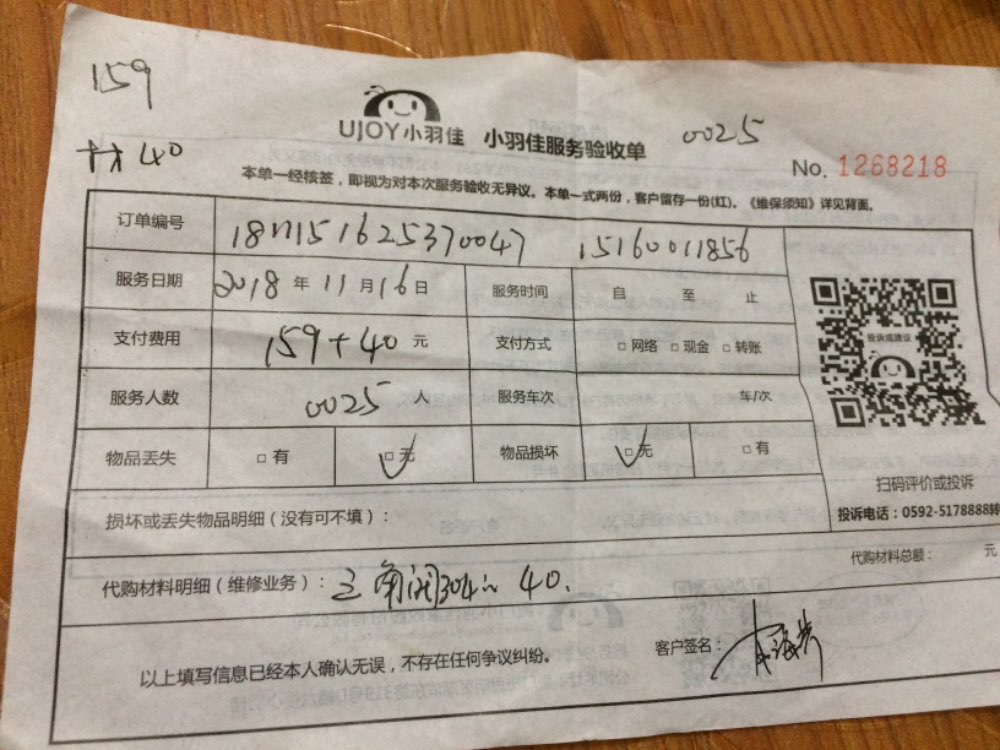 159
材40
UJOY小羽佳 小羽佳服务验收单 0025
No. 1268218
本单一经核签，即视为对本次服务验收无异议。本单一式两份，客户留存一份(红)。《维保须知》详见背面。
订单编号 1811151625370047 15160011856
服务日期 2018年11月16日 服务时间 自 至 止
支付费用 159+40元 支付方式 □网络 □现金 □转账
投诉或建议
服务人数 0025 人 服务车次 车/次
物品丢失 □有 □无 物品损坏 □无 □有
扫码评价或投诉
损坏或丢失物品明细（没有可不填）：
投诉电话：0592-5178888转
代购材料总额： 元
代购材料明细（维修业务）：三角阀304 40.
以上填写信息已经本人确认无误，不存在任何争议纠纷。 客户签名：